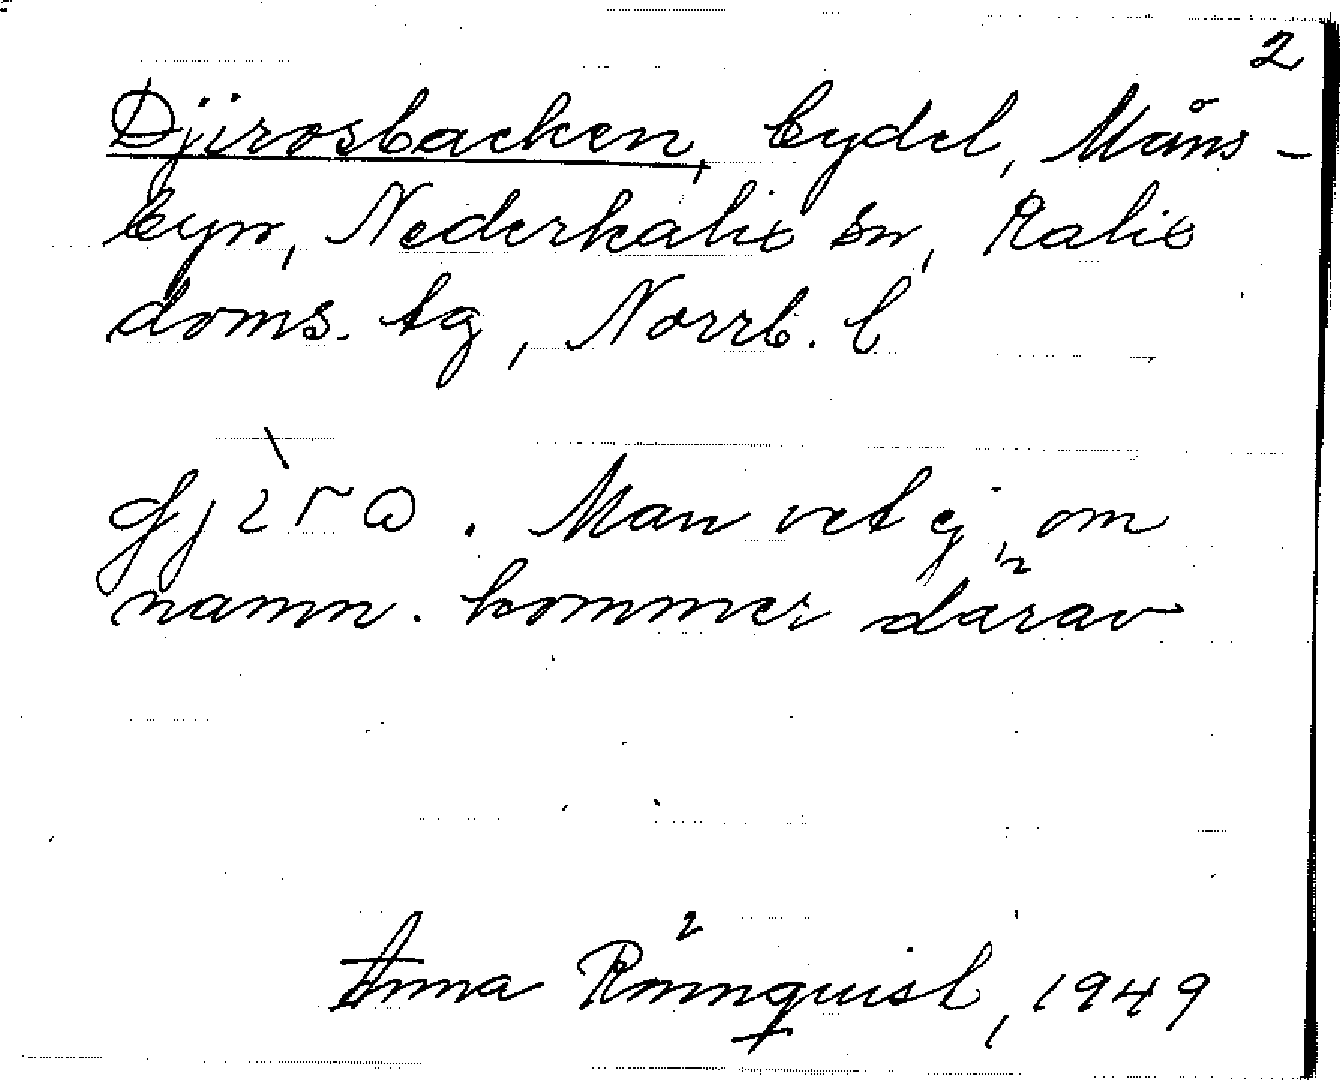 2
Djirosbacken, bydel, Måns-
byn, Nederkalix sn, Kalix
doms. tg, Norrb. l
Man vet ej om
namn. kommer därav
Anna Rönnquist, 1949